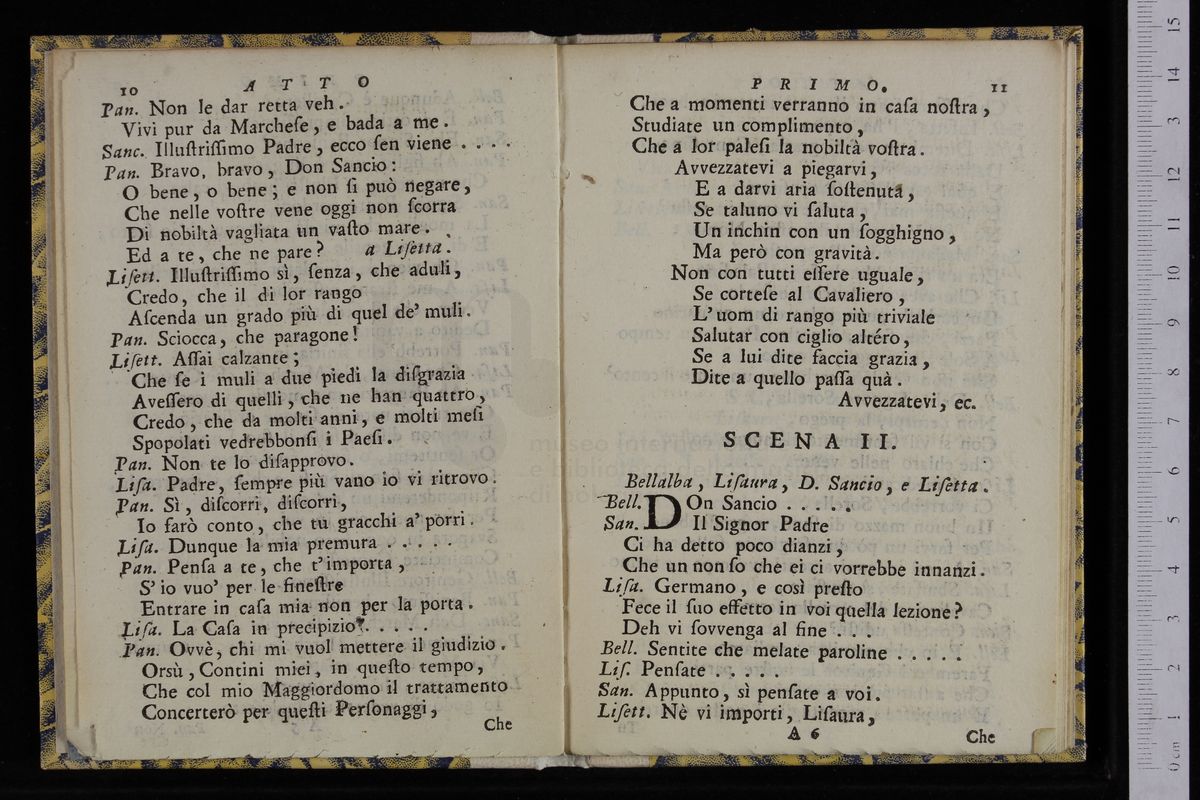 10 ATTO
Pan. Non le dar retta veh.
Vivi pur da Marcheſe, e bada a me.
Sanc. Illuſtriſſimo Padre, ecco ſen viene . . . .
Pan. Bravo, bravo, Don Sancio:
O bene, o bene; e non ſi può negare,
Che nelle voſtre vene oggi non ſcorra
Di nobiltà vagliata un vaſto mare.
Ed a te, che ne pare? a Liſetta.
Liſett. Illuſtriſſimo sì, ſenza, che aduli,
Credo, che il di lor rango
Aſcenda un grado più di quel de' muli.
Pan. Sciocca, che paragone!
Liſett. Aſſai calzante;
Che ſe i muli a due piedi la diſgrazia
Aveſſero di quelli, che ne han quattro,
Credo, che da molti anni, e molti meſi
Spopolati vedrebbonſi i Paeſi.
Pan. Non te lo diſapprovo.
Liſa. Padre, ſempre più vano io vi ritrovo.
Pan. Sì, diſcorri, diſcorri,
Io farò conto, che tu gracchi a' porri.
Liſa. Dunque la mia premura . . . . .
Pan. Penſa a te, che t'importa,
S'io vuo' per le fineſtre
Entrare in caſa mia non per la porta.
Liſa. La Caſa in precipizio . . . . .
Pan. Ovvè, chi mi vuol mettere il giudizio.
Orsù, Contini miei, in queſto tempo,
Che col mio Maggiordomo il trattamento
Concerterò per queſti Perſonaggi,
Che
PRIMO. 11
Che a momenti verranno in caſa noſtra,
Studiate un complimento,
Che a lor paleſi la nobiltà voſtra.
Avvezzatevi a piegarvi,
E a darvi aria ſoſtenuta,
Se taluno vi ſaluta,
Un inchin con un ſogghigno,
Ma però con gravità.
Non con tutti eſſere uguale,
Se corteſe al Cavaliero,
L'uom di rango più triviale
Salutar con ciglio altéro,
Se a lui dite faccia grazia,
Dite a quello paſſa quà.
Avvezzatevi, ec.
SCENA II.
Bellalba, Liſaura, D. Sancio, e Liſetta.
Bell. DOn Sancio . . . . .
San. Il Signor Padre
Ci ha detto poco dianzi,
Che un non ſo che ei ci vorrebbe innanzi.
Liſa. Germano, e così preſto
Fece il ſuo effetto in voi quella lezione?
Deh vi ſovvenga al fine . . .
Bell. Sentite che melate paroline . . . . .
Liſ. Penſate . . . . .
San. Appunto, sì penſate a voi.
Liſett. Nè vi importi, Liſaura,
A 6 Che